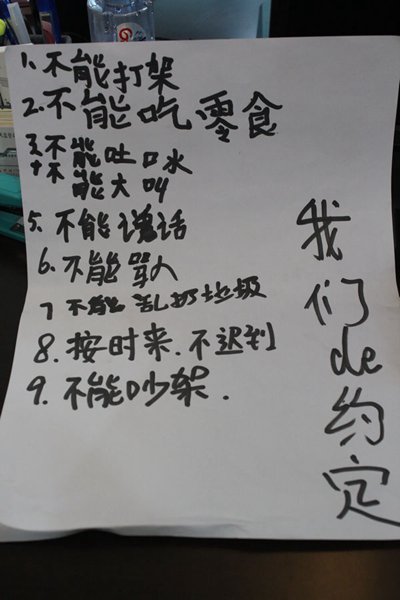 1. 不能打架
2. 不能吃零食
3. 不能吐口水
4. 不能大叫
5. 不能说话
6. 不能骂人
7 不能乱扔垃圾
8. 按时来. 不迟到
9. 不能吵架.
我们de约定